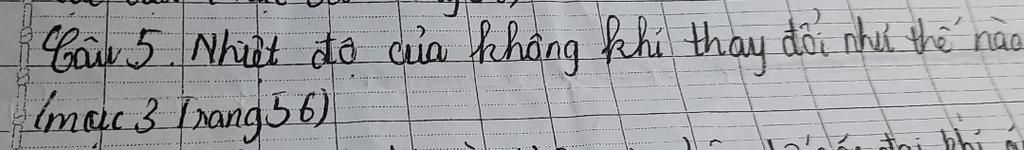 Câu 5. Nhiệt độ của không khí thay đổi như thế nào
(mục 3 Trang 56)